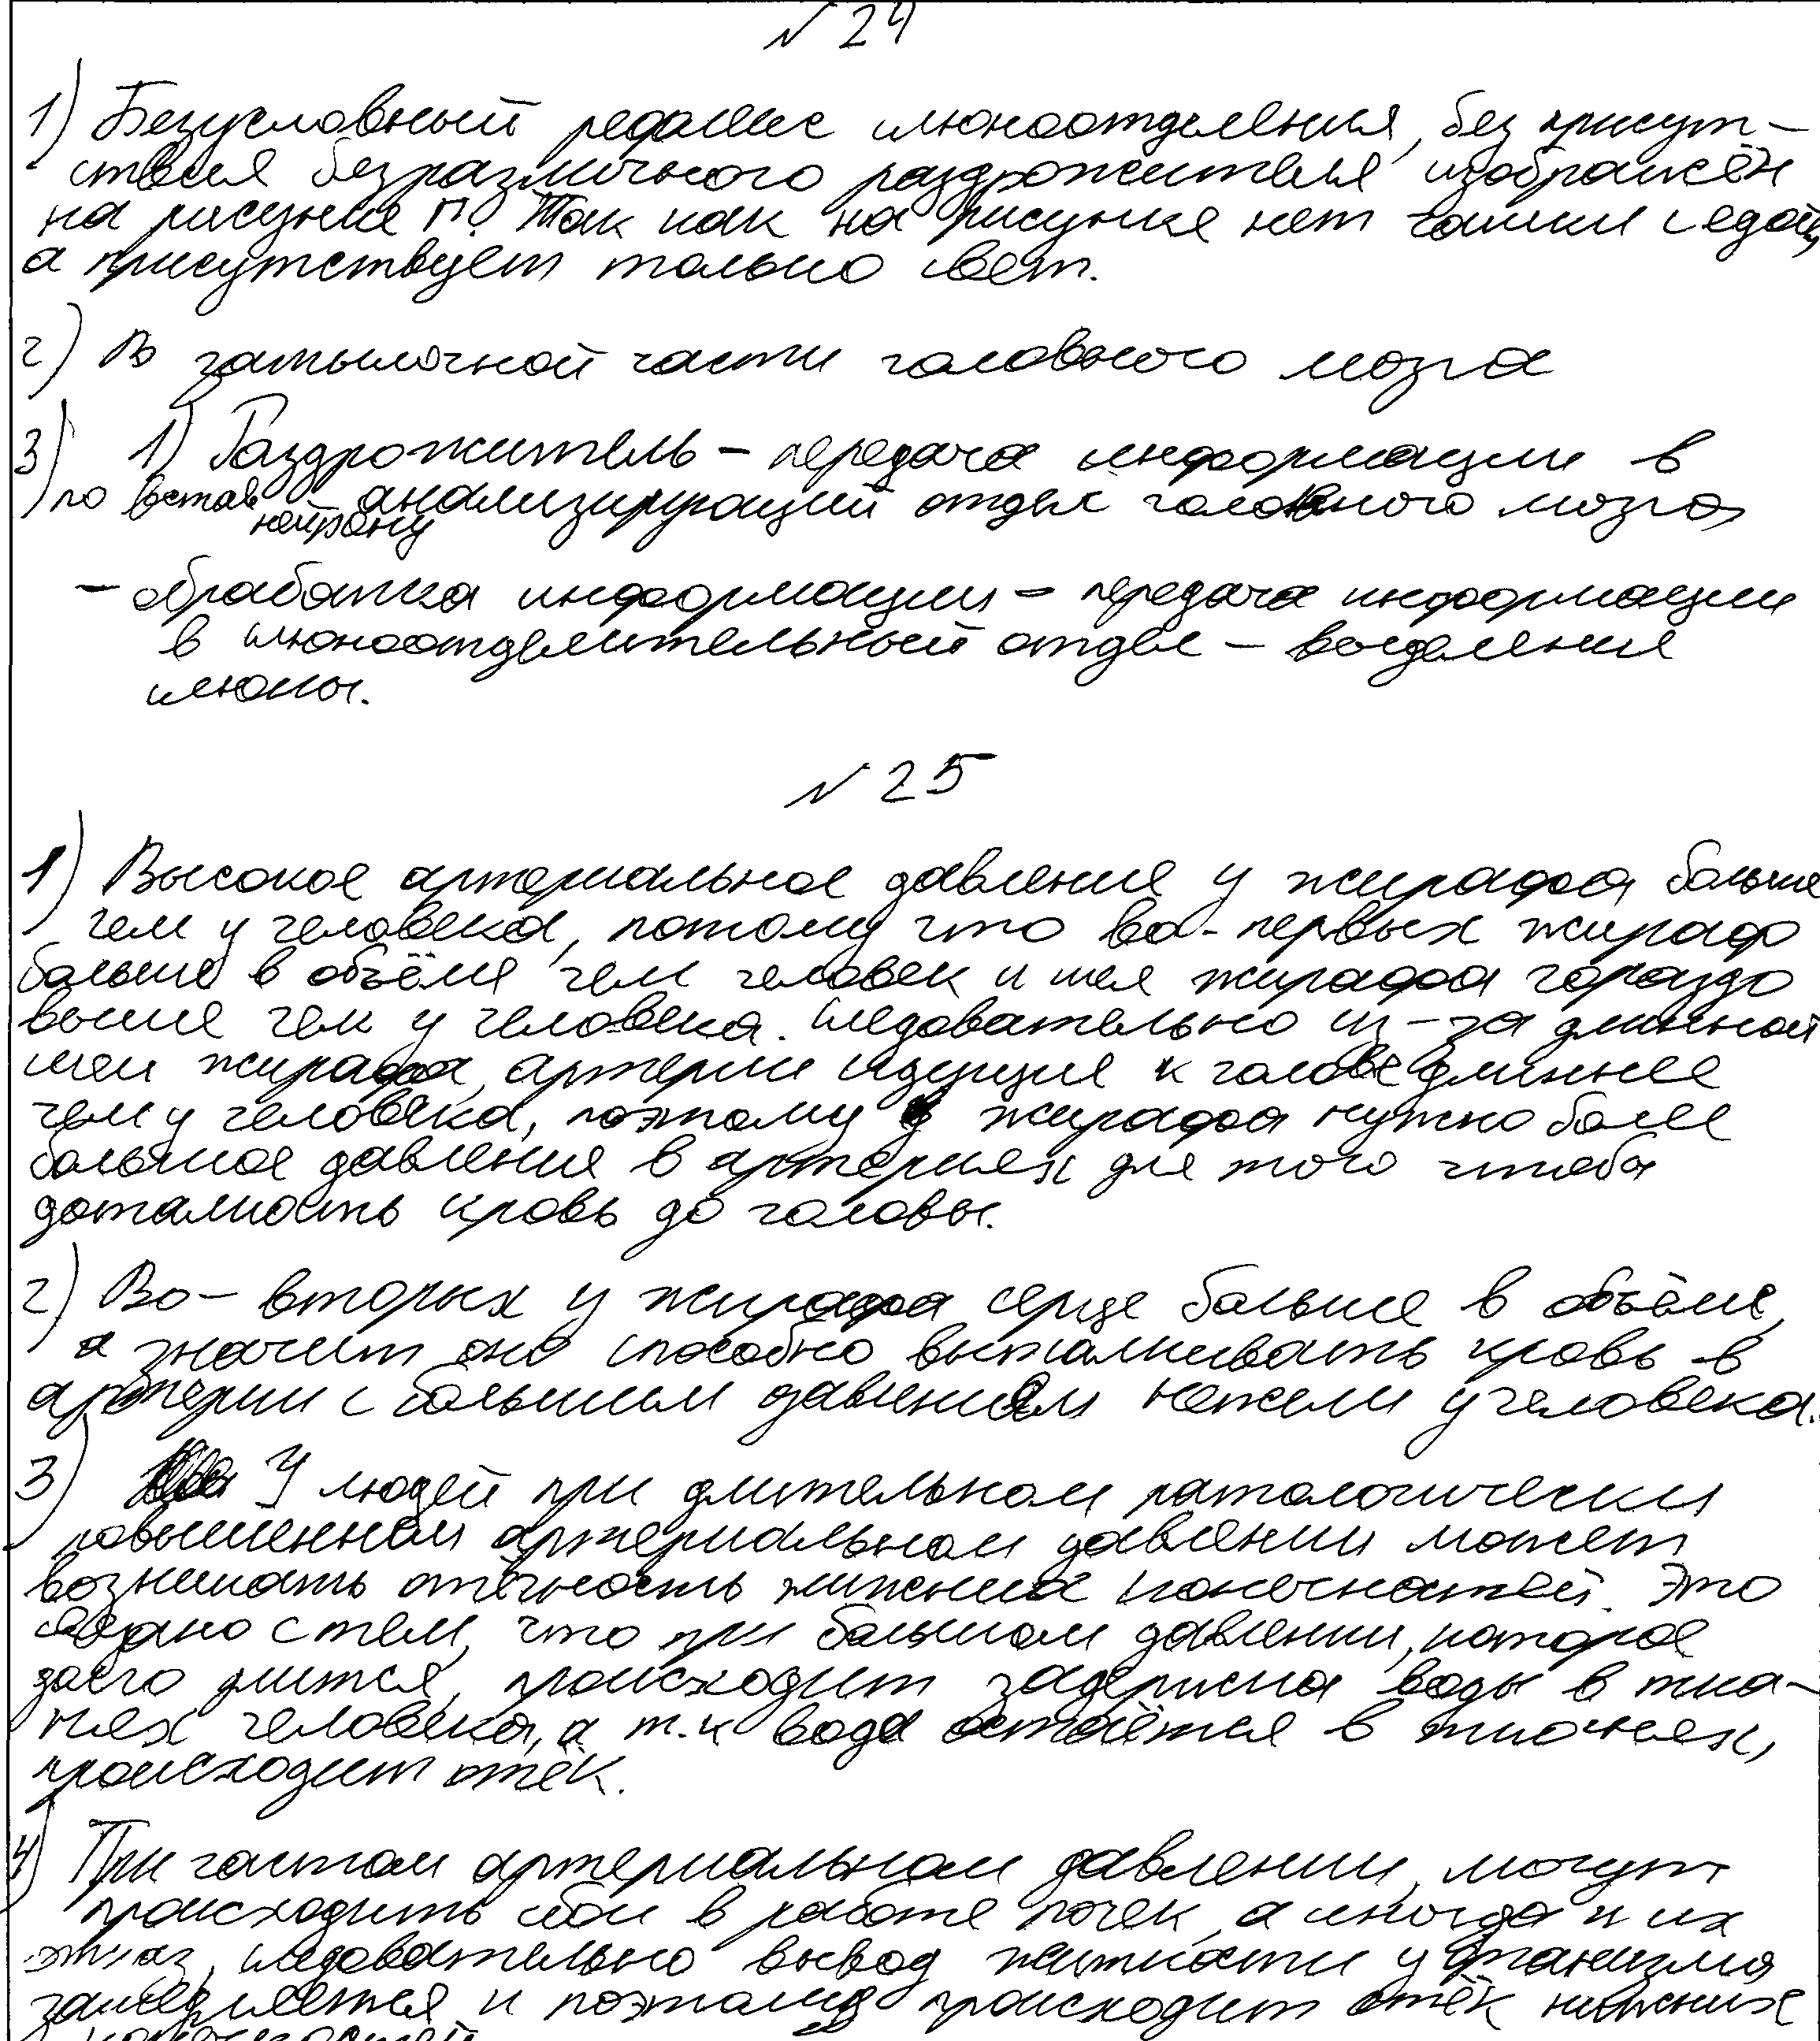 № 24
1) Безусловный рефлекс слюноотделения, без присут-
ствия безразличного раздрожителя изображён
на рисунке П. Так как на рисунке нет чашки с едой,
а присутствует только свет.
2) В затылочной части головного мозга
3) 1) Раздрожитель – передача информации в
по встав – анализирующий отдел головного мозга
нейрону
– обработка информации – передача информации
в слюноотделительный отдел – выделение
слюны.
№ 25
1) Высокое артериальное давление у жирафа больше
чем у человека, потому что во-первых жираф
больше в объёме чем человек и шея жирафа гораздо
выше чем у человека. Следовательно из-за длинной
шеи жирафа, артерии идущие к голове длиннее
чем у человека, поэтому у жирафа нужно более
большое давление в артериях для того чтобы
доталкать кровь до головы.
2) Во-вторых у жирафа серце больше в объёме,
а значит оно способно выталкивать кровь в
артерии с большим давлением нежели у человека.
3) У людей при длительном патологически
повышенном артериальном давлении может
возникать отёчность нижних конечностей. Это
связано с тем, что при большом давлении, которое
долго длится, происходит задержка воды в тка-
нях человека, а т.к вода остаётся в тканях,
происходит отёк.
4) При частом артериальном давлении, могут
происходить сбои в работе почек, а иногда и их
отказ, следовательно вывод жидкости у организма
замедляется и поэтому происходит отёк нижних
конечностей